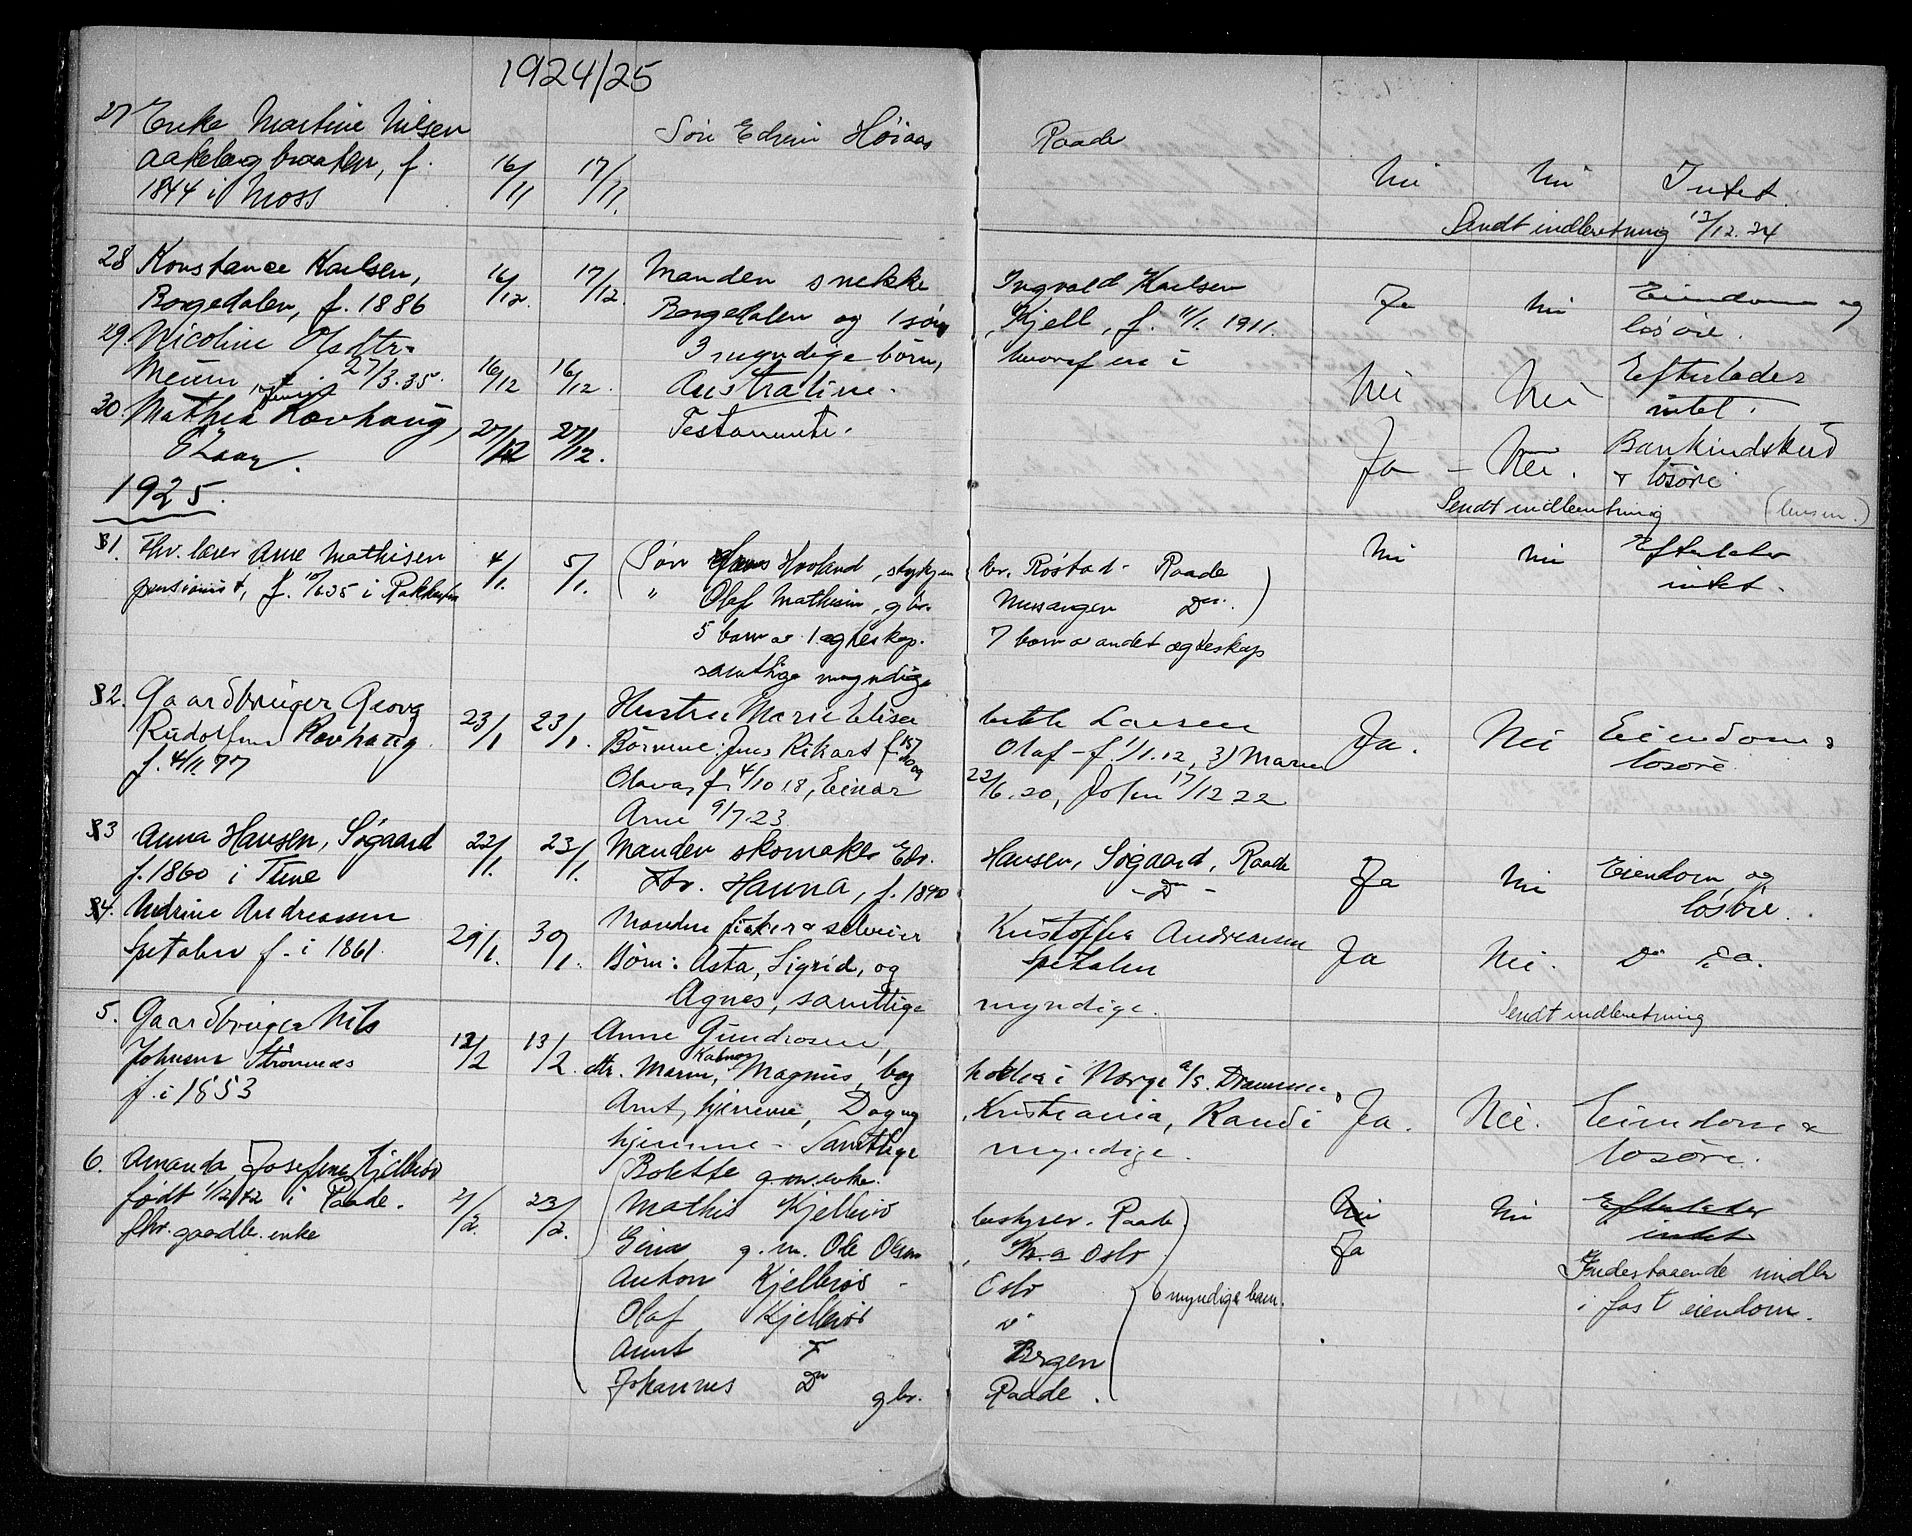 1924/25
27 Enke Martine Nilsen
aakebergbraaten, f.
1844 i Moss
16/11 17/11.
Søn Edvin Høiaas Raade
Nei Nei Intet.
Sendt indberetning 13/12.24
28 Konstance Karlsen,
Borgedalen, f. 1886
16/12. 17/12.
Manden snekke Ingvald Karlsen
Borgedalen og 1 søn, Kjell, f. 11/1. 1911.
Ja Nei Eiendom og
løsøre.
29. Nicoline Olsdtr.
27/3.35.
16/12 16/12.
3 myndige børn, hvoraf en i
Australien.
Nei Nei Efterlader
intet.
30. Mathea Rovhaug,
27/12 27/12.
Testamente.
Ja - Nei. Bankindskud
& løsøre
1925.
Sendt indberetning
31. Fhv. lærer Arne Mathisen
pensionist, f. 10/6 35 i Rakkestad
4/1. 5/1.
(Søn Hans Hovland, br. Røstad - Raade
" Olaf Mathisen, gbr. Do.)
5 barn av 1 ægteskap. 7 barn av andet ægteskap
samtlige myndige
Nei Nei Efterlater
intet.
32. Gaardbruger Georg
Rudolfsen Rovhaug
f. 4/11.77
23/1 23/1.
Hustru Marie Elise Larsen
Børnene: Jens Rikart f 15/7
Olaf - f. 1/1.12, 3) Maren
Olava, f. 4/10 18, Einar 22/6.20, John 17/12 22
Arne 9/7.23
Ja. Nei Eiendom &
løsøre.
33 Anna Hansen, Søgaard
f. 1860 i Tune
22/1. 23/1.
Manden skomaker Edv. Hansen, Søgaard, Raade
Hanna, f. 1890 - Do -
Ja Nei Eiendom og
løsøre.
34. Andrine Andreassen
Spetalen f. i 1861.
29/1. 30/1.
Manden fisker & selveier Kristoffer Andreassen
Spetalen
Børn: Asta, Sigrid, og
Agnes, samtlige myndige.
Ja Nei. Do Do.
Sendt indberetning
5. Gaardbruger Nils
Johnsen Strømnes
f. i 1853
12/2 13/2.
Anne Gundrosen,
Maren, Magnus, bog holder i Norge a/s. Drammen,
Arnt, hjemme, Dagny, Kristiania, Randi
hjemme - Samtlige myndige.
Ja. Nei. Eiendom &
løsøre.
6. Amanda Josefine Kjellerød
født 1/12 42 i Raade.
fhv. gaardbr. enke
2/2. 23/2.
Bolette g.m. enke.
Mathis Kjellerød bestyrer. Raade
Gina g.m. Ole Olsen, Kr.a Oslo
Anton Kjellerød - Oslo
Olaf Kjellerød "
Arnt Bergen
Johannes Do gbr. Raade.
6 myndige barn.
Nei Nei Efterlater
intet
Ja
Indestaaende midler
i fast eiendom.